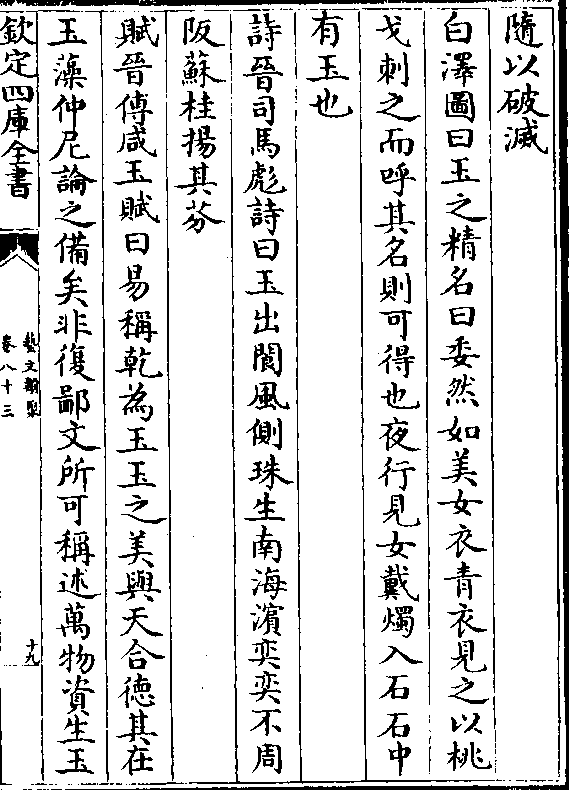 隨以破滅
白澤圖曰玉之精名曰委然如美女衣青衣見之以桃
戈刺之而呼其名則可得也夜行見女戴燭入石石中
有玉也
詩晉司馬彪詩曰玉出閬風側珠生南海濱奕奕不周
阪蘇桂揚其芬
賦晉傅咸玉賦曰易稱乾為玉玉之美與天合德其在
玉藻仲尼論之備矣非復鄙文所可稱述萬物資生玉
欽定四庫全書
藝文類聚
卷八十三
十九